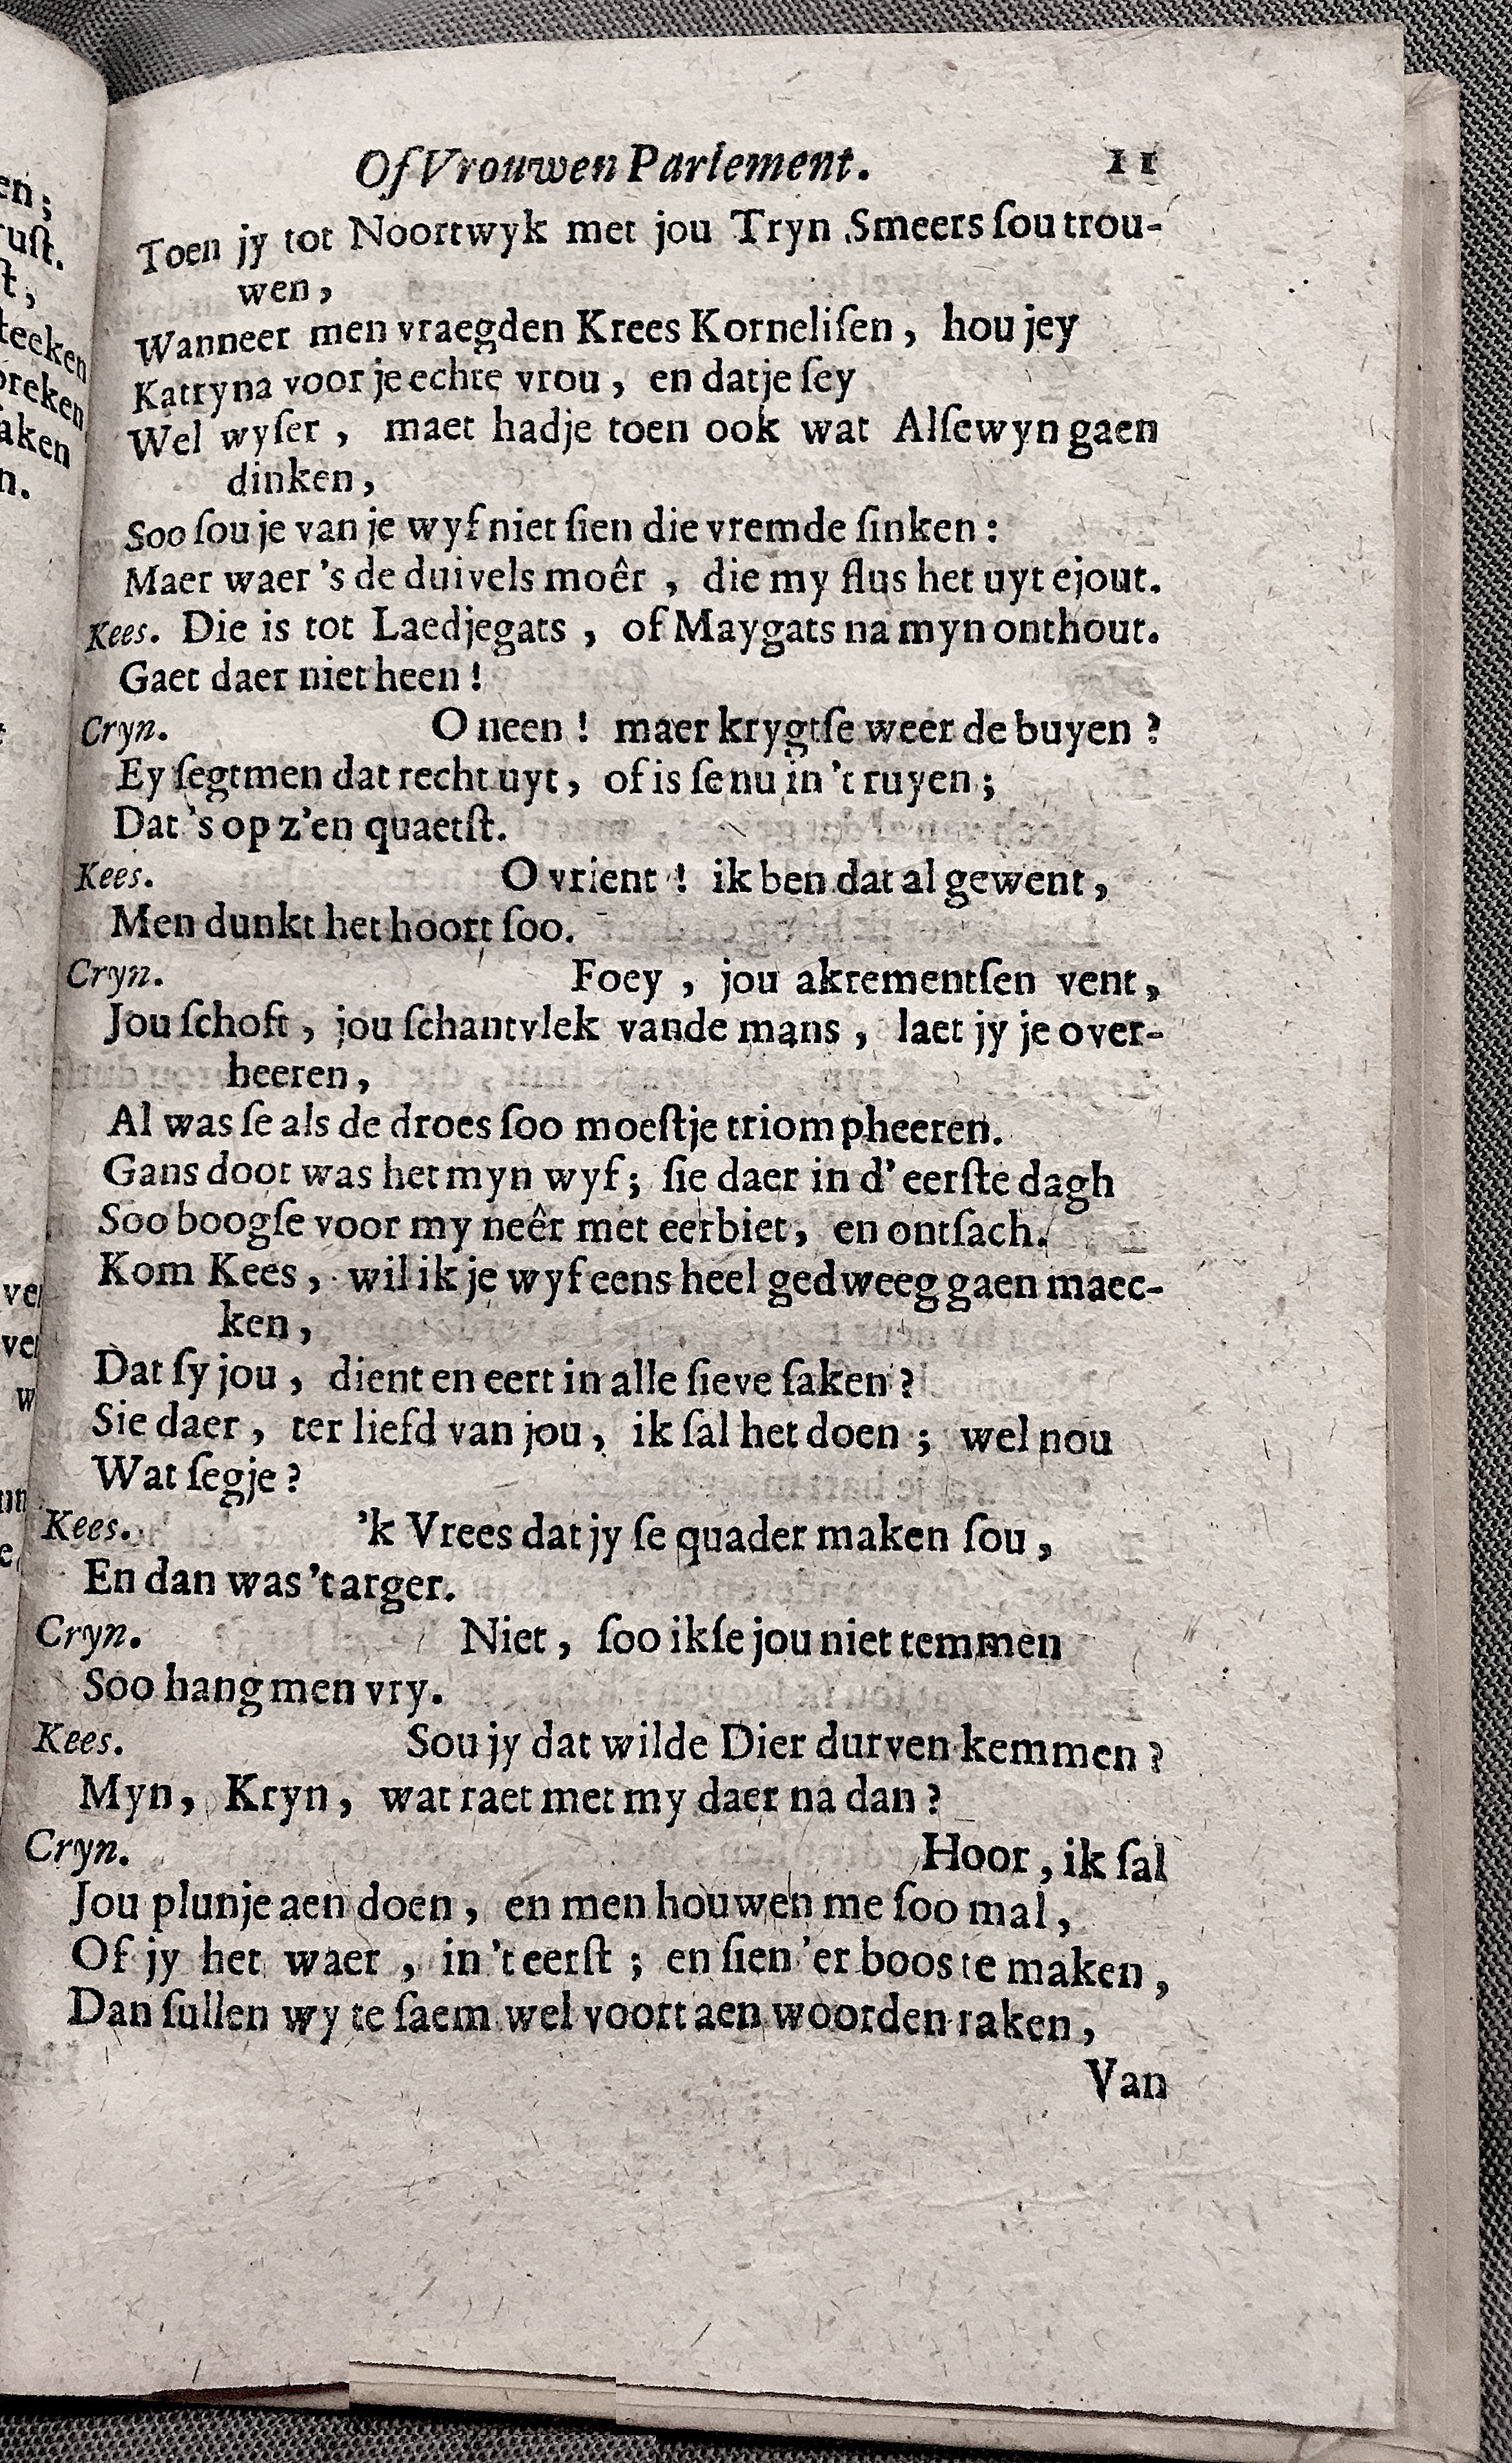 Of Vrouwen Parlement. 11
Toen jy tot Noortwyk met jou Tryn Smeers ſou trou-
wen,
Wanneer men vraegden Krees Korneliſen, hou jey
Katryna voor je echte vrou, en datje ſey
Wel wyſer, maet hadje toen ook wat Alſewyn gaen
dinken,
Soo ſou je van je wyf niet ſien die vremde ſinken:
Maer waer 's de duivels moêr, die my flus het uyt ejout.
Kees. Die is tot Laedjegats, of Maygats na myn onthout.
Gaet daer niet heen!
Cryn. O neen! maer krygtſe weer de buyen?
Ey ſegtmen dat recht uyt, of is ſe nu in 't ruyen;
Dat 's op z'en quaetſt.
Kees. O vrient! ik ben dat al gewent,
Men dunkt het hoort ſoo.
Cryn. Foey, jou akrementſen vent,
Jou ſchoft, jou ſchantvlek vande mans, laet jy je over-
heeren,
Al was ſe als de droes ſoo moeſtje triompheeren.
Gans doot was het myn wyf; ſie daer in d' eerſte dagh
Soo boogſe voor my neêr met eerbiet, en ontſach.
Kom Kees, wil ik je wyf eens heel gedweeg gaen maec-
ken,
Dat ſy jou, dient en eert in alle ſieve ſaken?
Sie daer, ter liefd van jou, ik ſal het doen; wel nou
Wat ſegje?
Kees. 'k Vrees dat jy ſe quader maken ſou,
En dan was 't arger.
Cryn. Niet, ſoo ikſe jou niet temmen
Soo hang men vry.
Kees. Sou jy dat wilde Dier durven kemmen?
Myn, Kryn, wat raet met my daer na dan?
Cryn. Hoor, ik ſal
Jou plunje aen doen, en men houwen me ſoo mal,
Of jy het waer, in 't eerſt; en ſien 'er boos te maken,
Dan ſullen wy te ſaem wel voort aen woorden raken,
Van
en;
uſt.
t,
teeken
breken
aken
n.
ve
ve
w